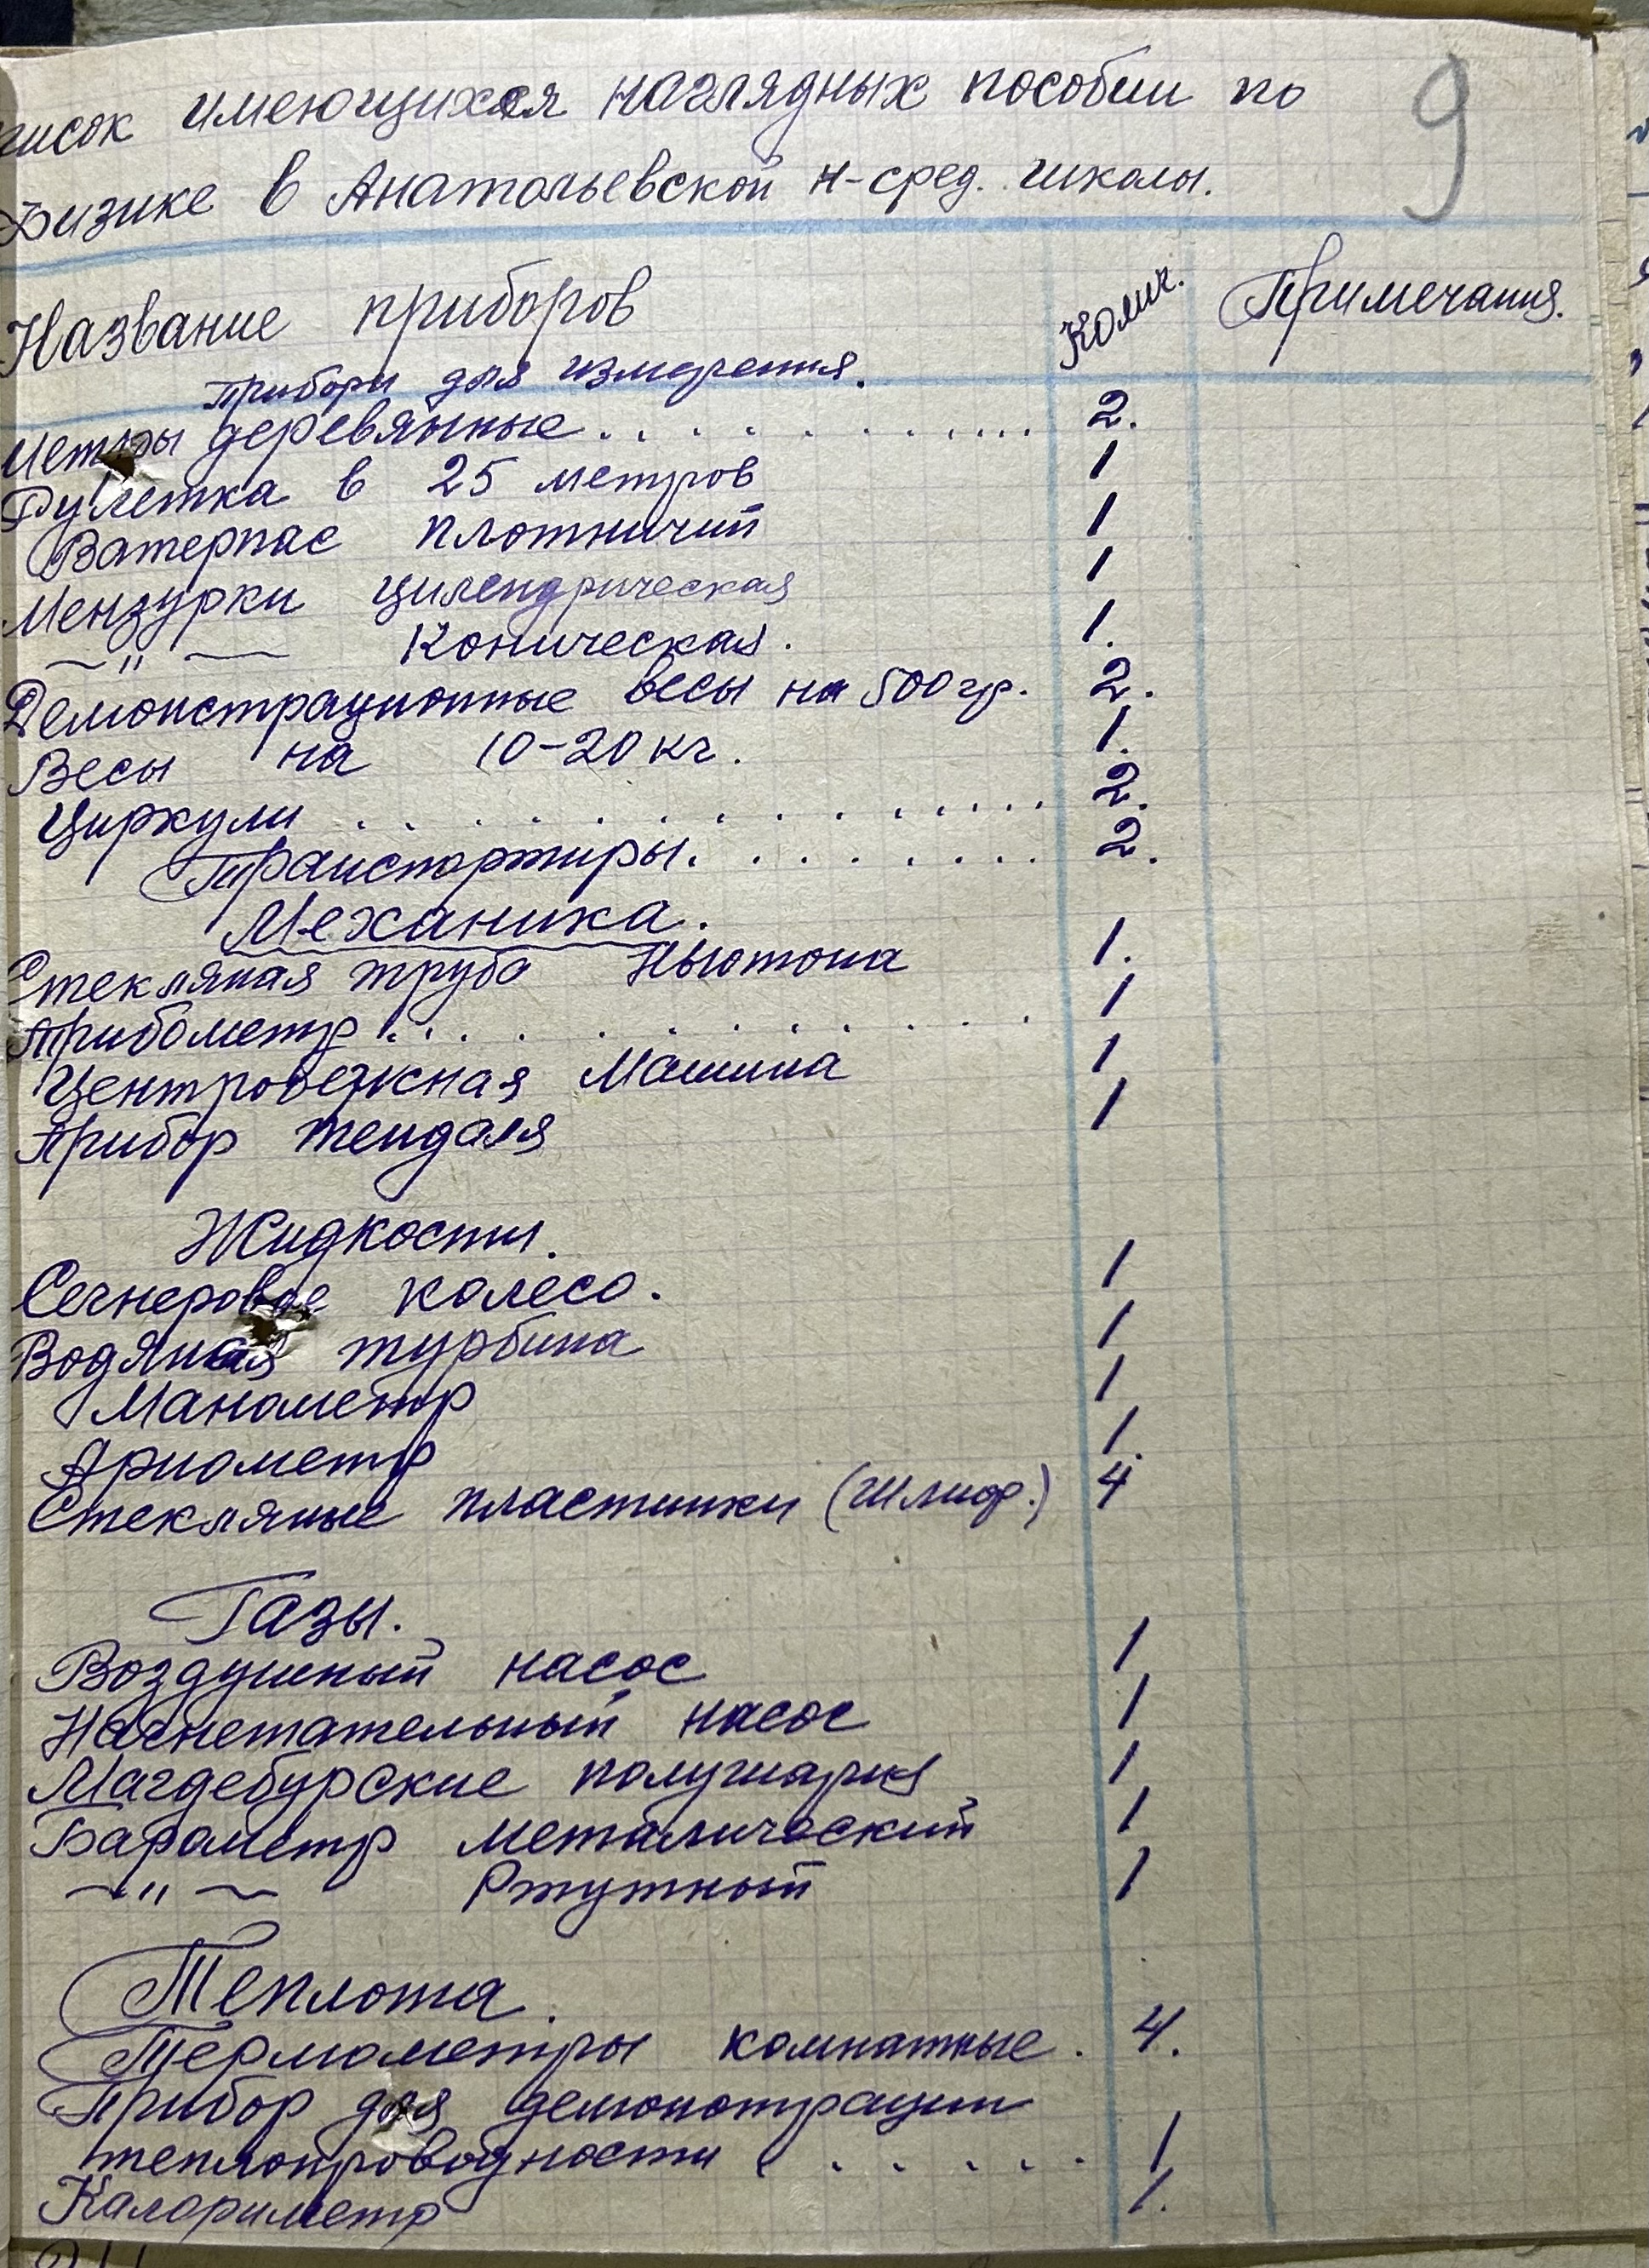 писок имеющихся наглядных пособии по
9
Физике в Анатольевской н-сред. школы.
Название приборов Колич. Примечания.
Прибори для измерения.
Метры деревянные . . . . . . . . . . . . 2.
Рулетка в 25 метров 1
Ватерпас плотничий 1
Мензурки цилендрическая 1
—"— Коническая. 1.
Демонстрационные весы на 500 гр. 2.
Весы на 10-20 кг. 1.
Циркули . . . . . . . . . . . . . 2.
Транспортиры. . . . . . . . . 2.
Механика.
Стекляная труба Ньютона 1.
Трибометр . . . . . . . . . . . . 1
Центробежная Машина 1
Прибор тендаля 1
Жидкости.
Сегнеровое колесо. 1
Водяная турбина 1
Манометр 1
Ариометр 1.
Стекляные пластинки (шлиф.) 4
Газы.
Воздушный насос 1
Нагнетательный насос 1
Магдебурские полушария 1
Барометр металический 1
—"— Ртутный 1
Теплота.
Термометры комнатные. 4.
Прибор для демонстрации
теплопроводности . . . . . . 1
Калориметр 1.